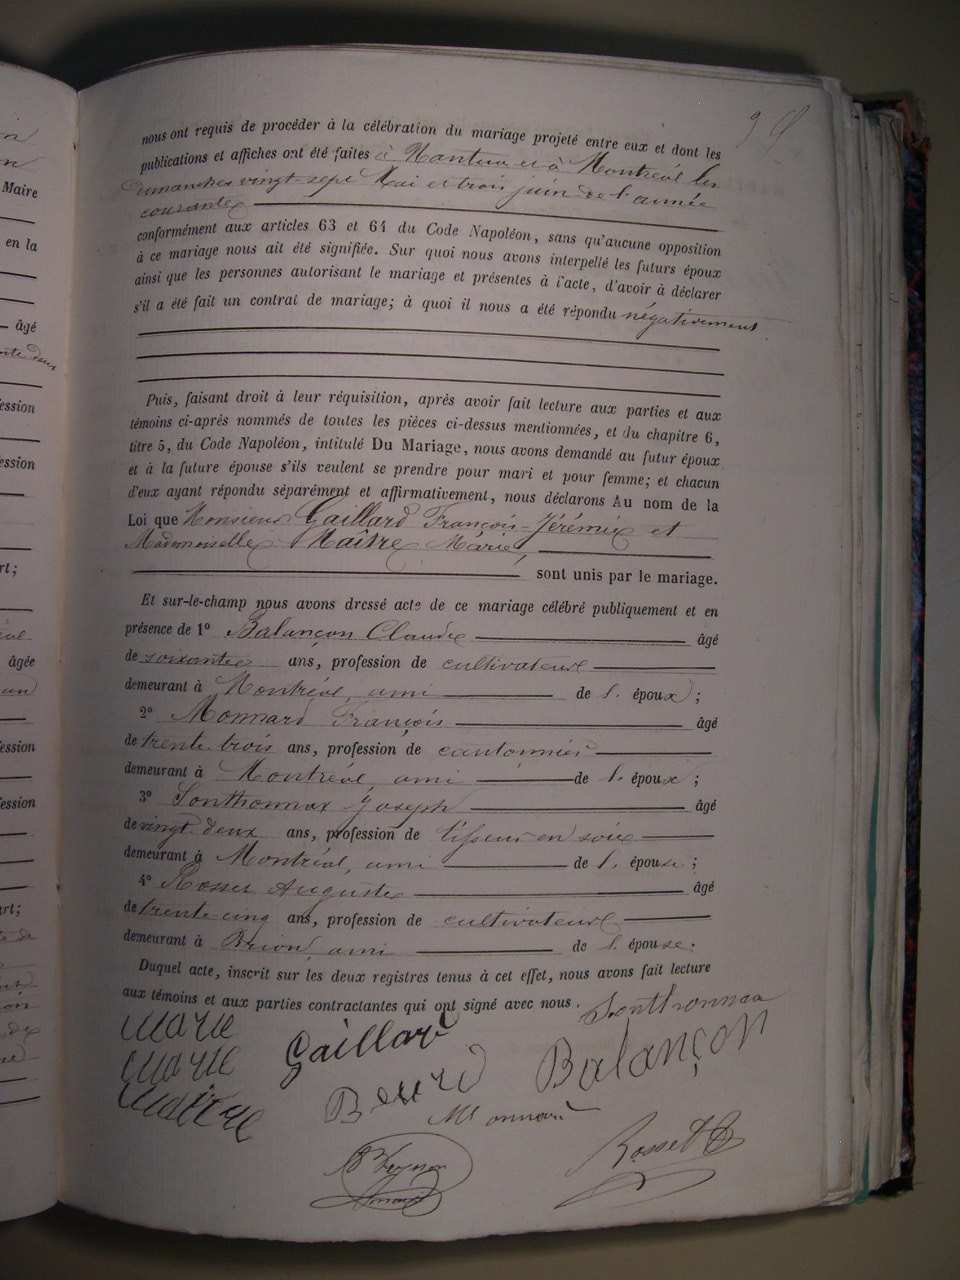 nous ont requis de procéder à la célébration du mariage projeté entre eux et dont les
publications et affiches ont été faites à Nantua et à Montréal les
dimanches vingt-sept Mai et trois juin de l'année
courante
conformément aux articles 63 et 64 du Code Napoléon, sans qu'aucune opposition
à ce mariage nous ait été signifiée. Sur quoi nous avons interpellé les futurs époux
ainsi que les personnes autorisant le mariage et présentes à l'acte, d'avoir à déclarer
s'il a été fait un contrat de mariage; à quoi il nous a été répondu négativement
Puis, faisant droit à leur réquisition, après avoir fait lecture aux parties et aux
témoins ci-après nommés de toutes les pièces ci-dessus mentionnées, et du chapitre 6,
titre 5, du Code Napoléon, intitulé Du Mariage, nous avons demandé au futur époux
et à la future épouse s'ils veulent se prendre pour mari et pour femme; et chacun
d'eux ayant répondu séparément et affirmativement, nous déclarons Au nom de la
Loi que Monsieur Gaillard François-Jérémie et
Mademoiselle Maître Marie,
sont unis par le mariage.
Et sur-le-champ nous avons dressé acte de ce mariage célébré publiquement et en
présence de 1º Balançon Claude âgé
de soixante ans, profession de cultivateur
demeurant à Montréal, ami de l' époux;
2º Monnard François âgé
de trente trois ans, profession de cantonnier
demeurant à Montréal, ami de l' époux;
3º Sonthonnax Joseph âgé
de vingt deux ans, profession de tisseur en soie
demeurant à Montréal, ami de l' épouse;
4º Rosset Auguste âgé
de trente cinq ans, profession de cultivateur
demeurant à Brion, ami de l' épouse.
Duquel acte, inscrit sur les deux registres tenus à cet effet, nous avons fait lecture
aux témoins et aux parties contractantes qui ont signé avec nous. Sonthonnax
Marie
Gaillard
Balançon
marie
maitre
Monnard
Rosset
Maire
en la
âgé
âgée